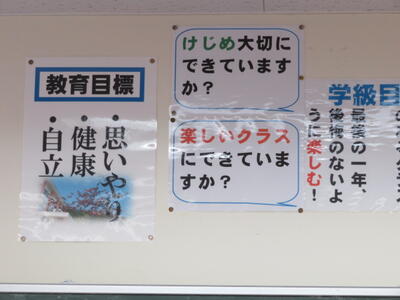 教育目標
・思いやり
・健康
・自立
けじめ大切に
できています
か?
楽しいクラス
にできていま
すか?
学級目
最後の一年、
後悔のないよ
うに楽しむ!